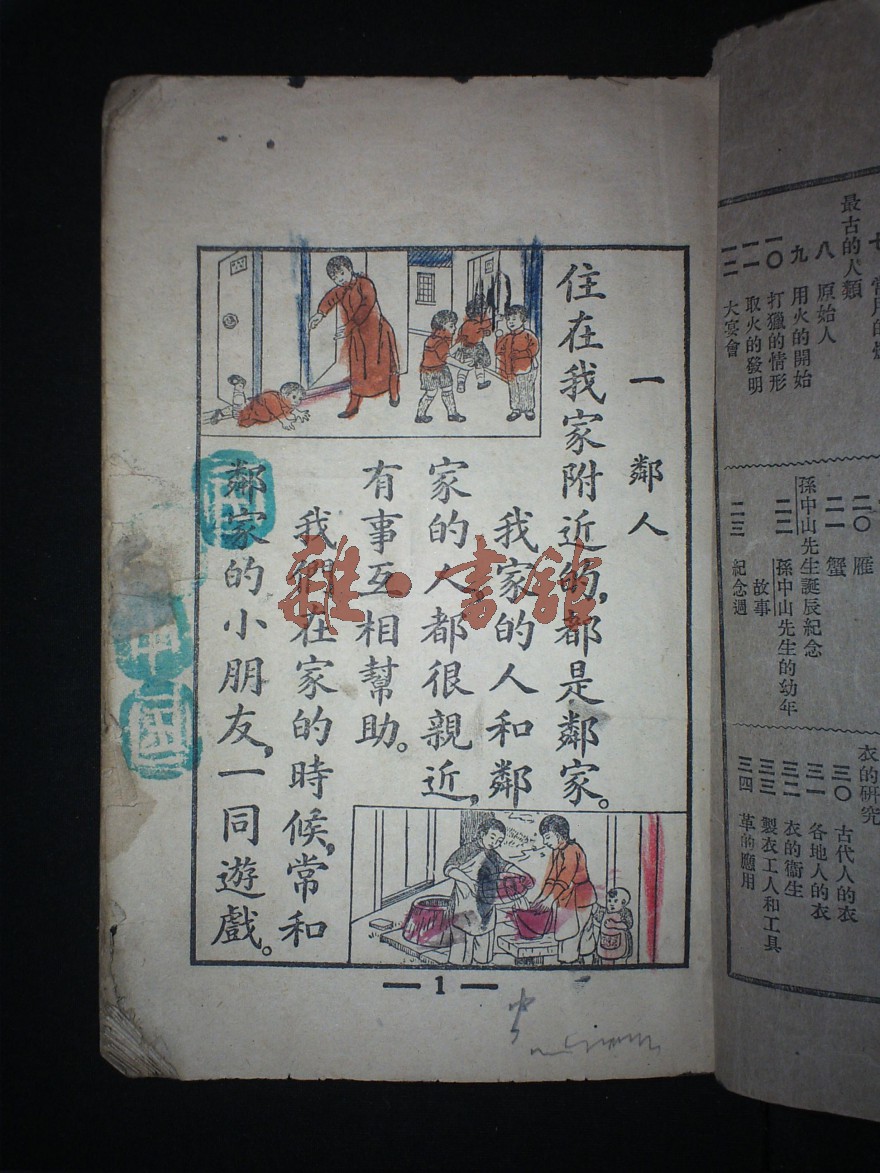 最古的人類
八 原始人
九 用火的開始
一〇 打獵的情形
一一 取火的發明
一二 大宴會
二〇 雁
二一 蟹
孫中山先生誕辰紀念
二二 孫中山先生的幼年
故事
二三 紀念週
衣的研究
三〇 古代人的衣
三一 各地人的衣
三二 衣的衞生
三三 製衣工人和工具
三四 革的應用
一 鄰人
住在我家附近的,都是鄰家。
我家的人和鄰
家的人都很親近,
有事互相幫助。
我們在家的時候,常和
鄰家的小朋友,一同遊戲。
1
雜·書館